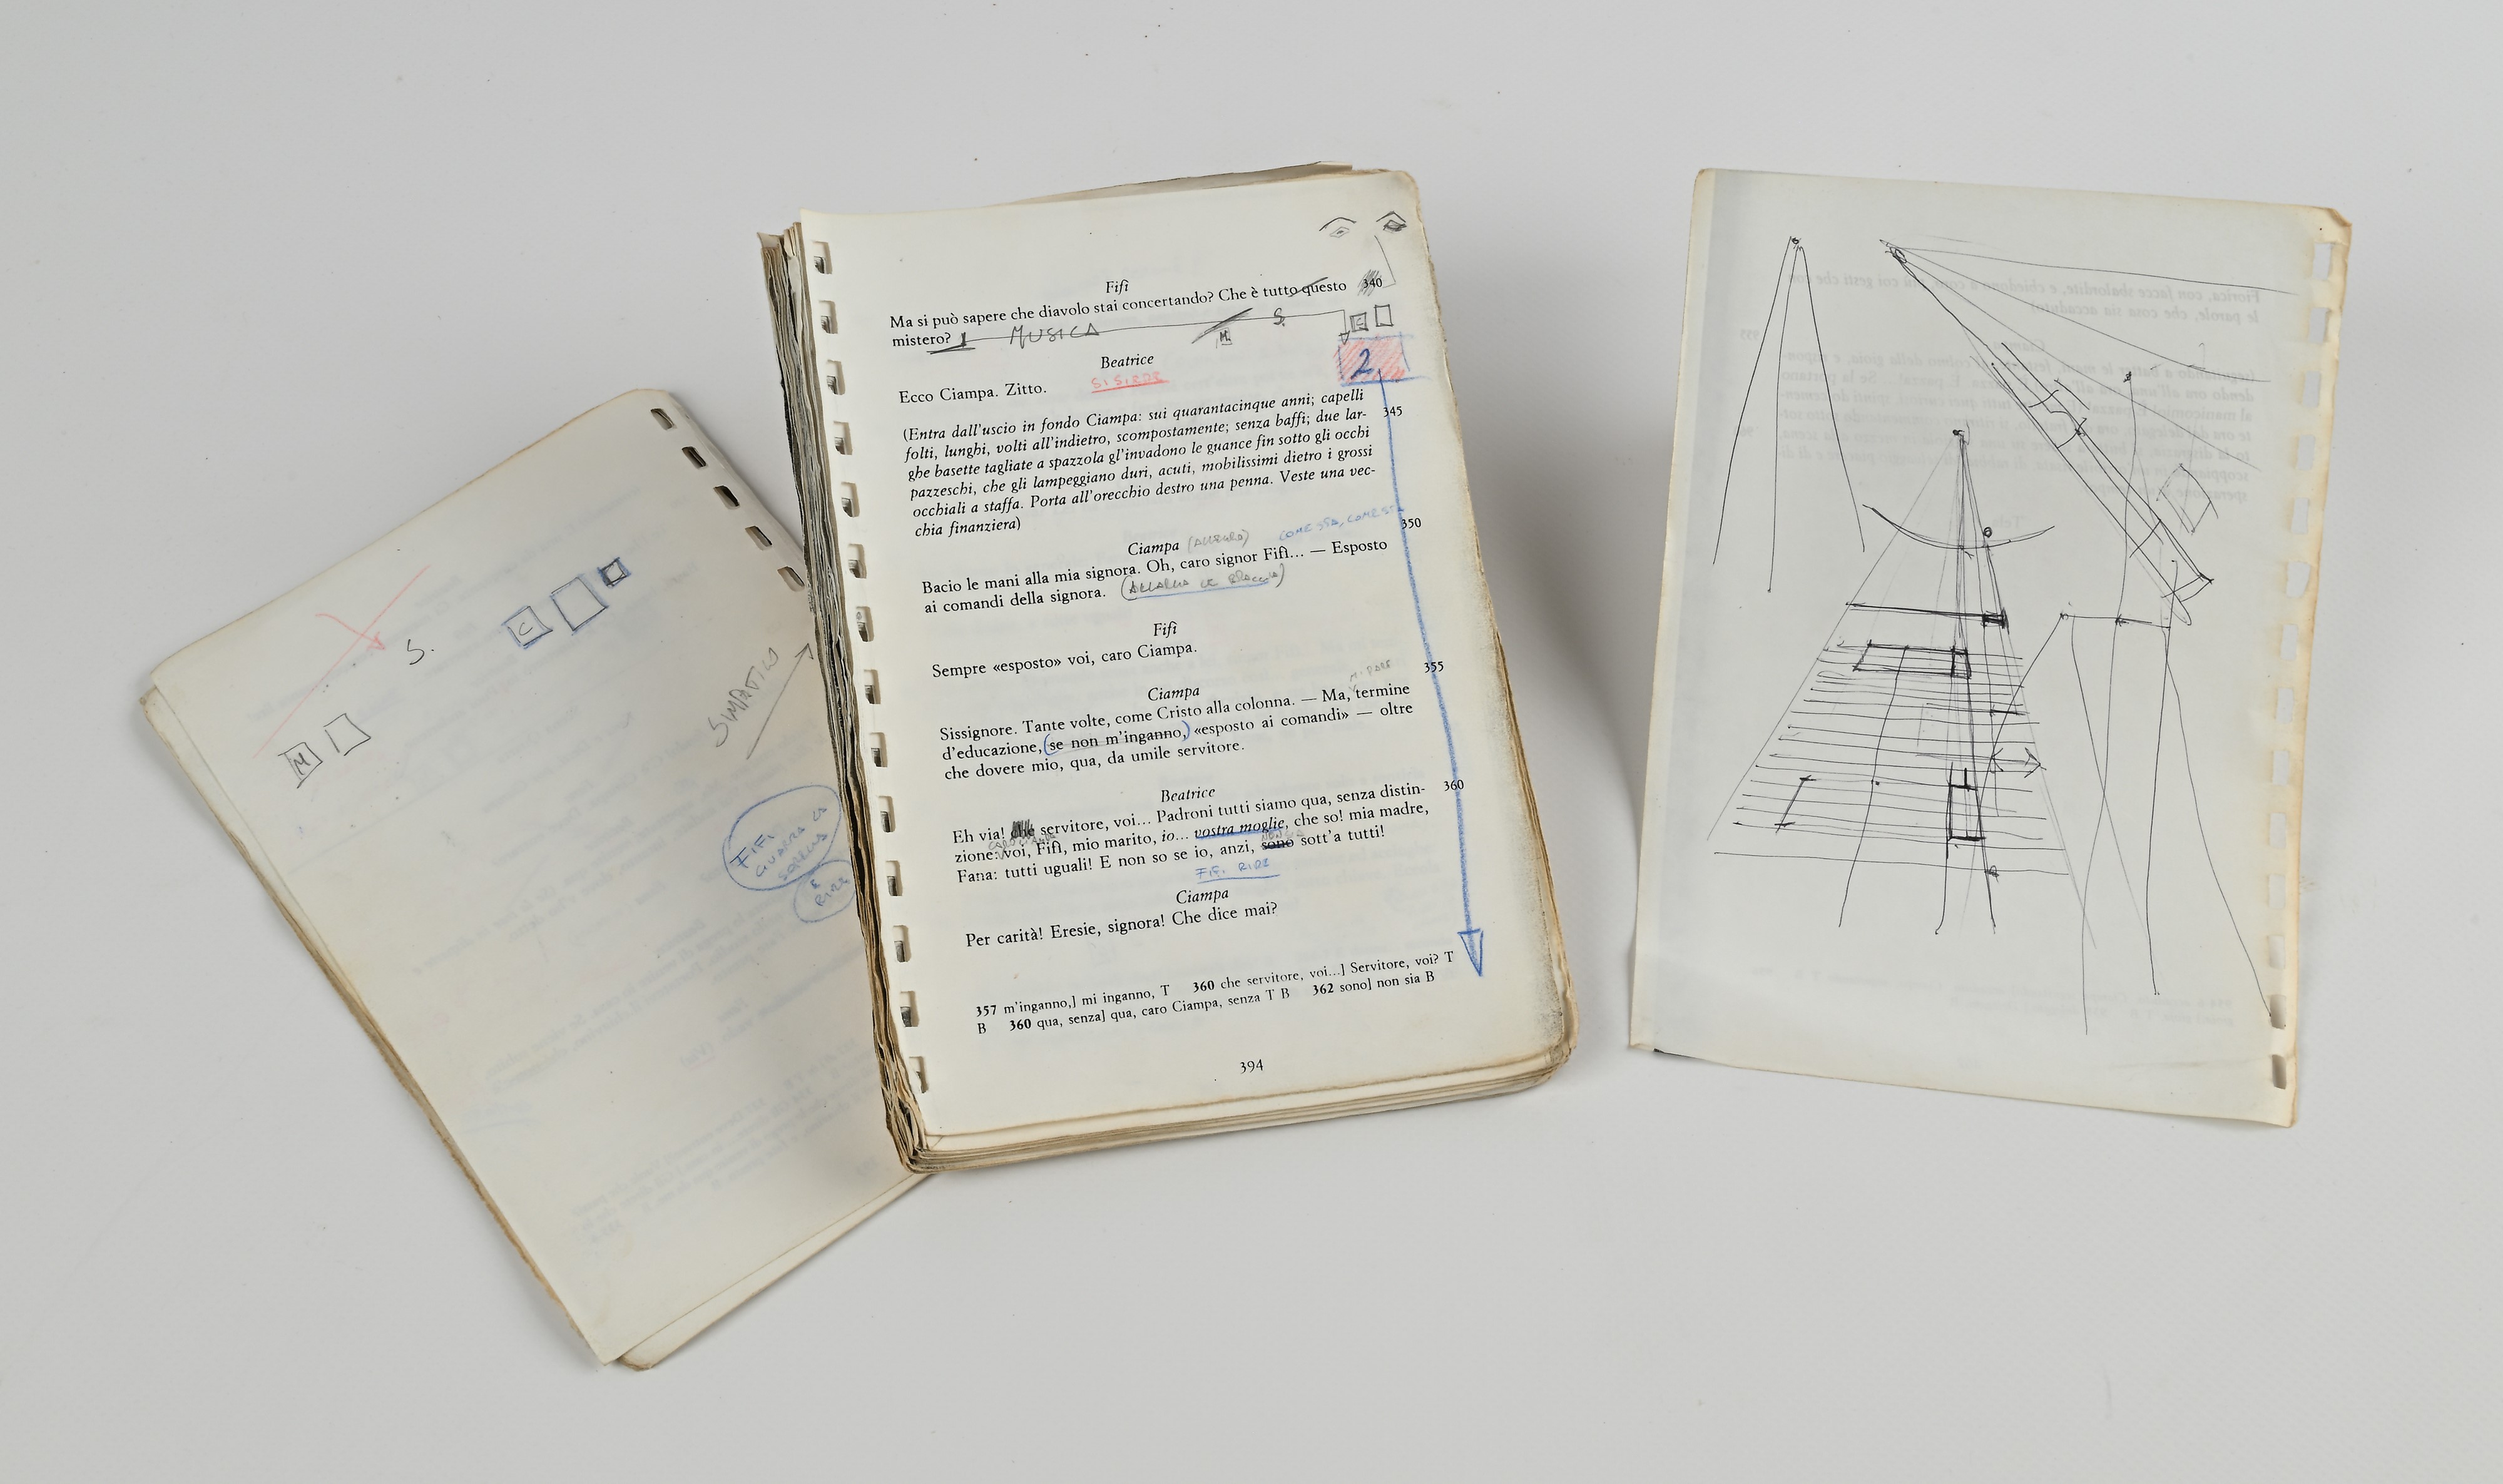 S.
C
M
SIMPATICO
FIFÌ
GUARDA LA
SORELLA
E
RIDE
Fifì
Ma si può sapere che diavolo stai concertando? Che è tutto questo 340
mistero? 1 MUSICA M S. C
2
Beatrice
Ecco Ciampa. Zitto. SI SIEDE
(Entra dall'uscio in fondo Ciampa: sui quarantacinque anni; capelli
folti, lunghi, volti all'indietro, scompostamente; senza baffi; due lar- 345
ghe basette tagliate a spazzola gl'invadono le guance fin sotto gli occhi
pazzeschi, che gli lampeggiano duri, acuti, mobilissimi dietro i grossi
occhiali a staffa. Porta all'orecchio destro una penna. Veste una vec-
chia finanziera)
Ciampa COME STA, COME STA 350
Bacio le mani alla mia signora. Oh, caro signor Fifì... — Esposto
ai comandi della signora. (ALLARGA LE BRACCIA)
Fifì
Sempre «esposto» voi, caro Ciampa.
Ciampa MI PARE 355
Sissignore. Tante volte, come Cristo alla colonna. — Ma, termine
d'educazione, (se non m'inganno,) «esposto ai comandi» — oltre
che dovere mio, qua, da umile servitore.
Beatrice 360
Eh via! che servitore, voi... Padroni tutti siamo qua, senza distin-
zione: voi, Fifì, mio marito, io... vostra moglie, che so! mia madre,
Fana: tutti uguali! E non so se io, anzi, sono sott'a tutti!
FIFÌ RIDE
Ciampa
Per carità! Eresie, signora! Che dice mai?
357 m'inganno,] mi inganno, T 360 che servitore, voi...] Servitore, voi? T
B 360 qua, senza] qua, caro Ciampa, senza T B 362 sono] non sia B
394